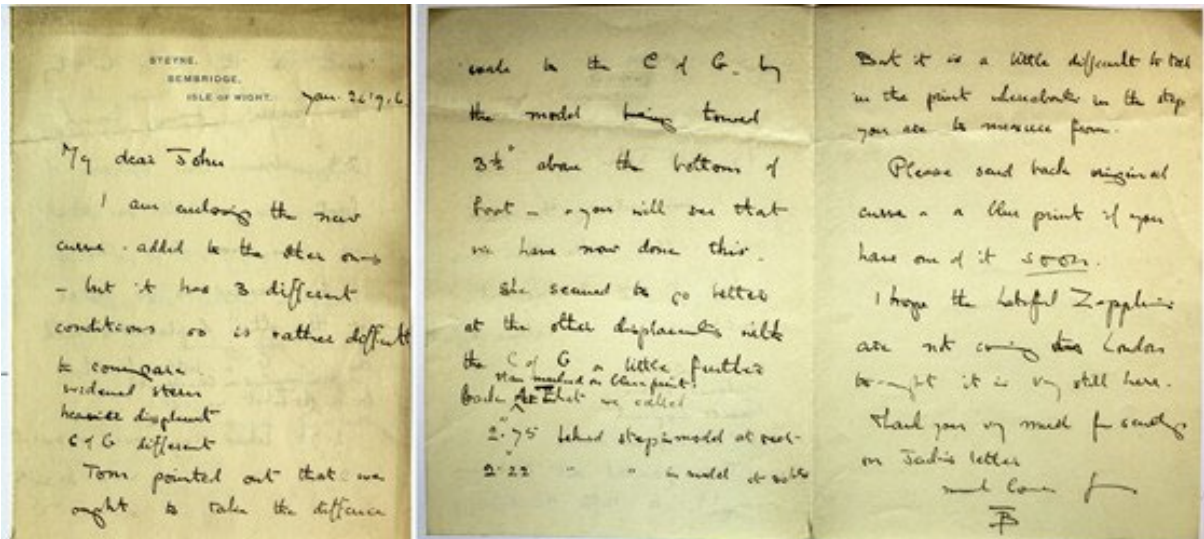 STEYNE,
BEMBRIDGE,
ISLE OF WIGHT.
Jan. 26. 1916.
My dear John
I am enclosing the new
curve - added to the other ones
- but it has 3 different
conditions so is rather difficult
to compare
widened stern
heavier displment
C of G different
Tom pointed out that we
ought to take the difference
made to the C of G. by
the model being towed
3½" above the bottom of
boat - you will see that
we have now done this.
She seemed to go better
at the other displacements with
the C of G a little further
than marked on blue print
back at what we called
2.75" behind step in model at rest.
2.22 " " in model at
But it is a little difficult to tell
in the print whereabouts in the step
you are to measure from.
Please send back original
curve & a blue print if you
have one of it soon.
I hope the hateful Zeppelins
are not coming to London
to-night it is very still here.
Thank you very much for sending
on letter
much love from
B